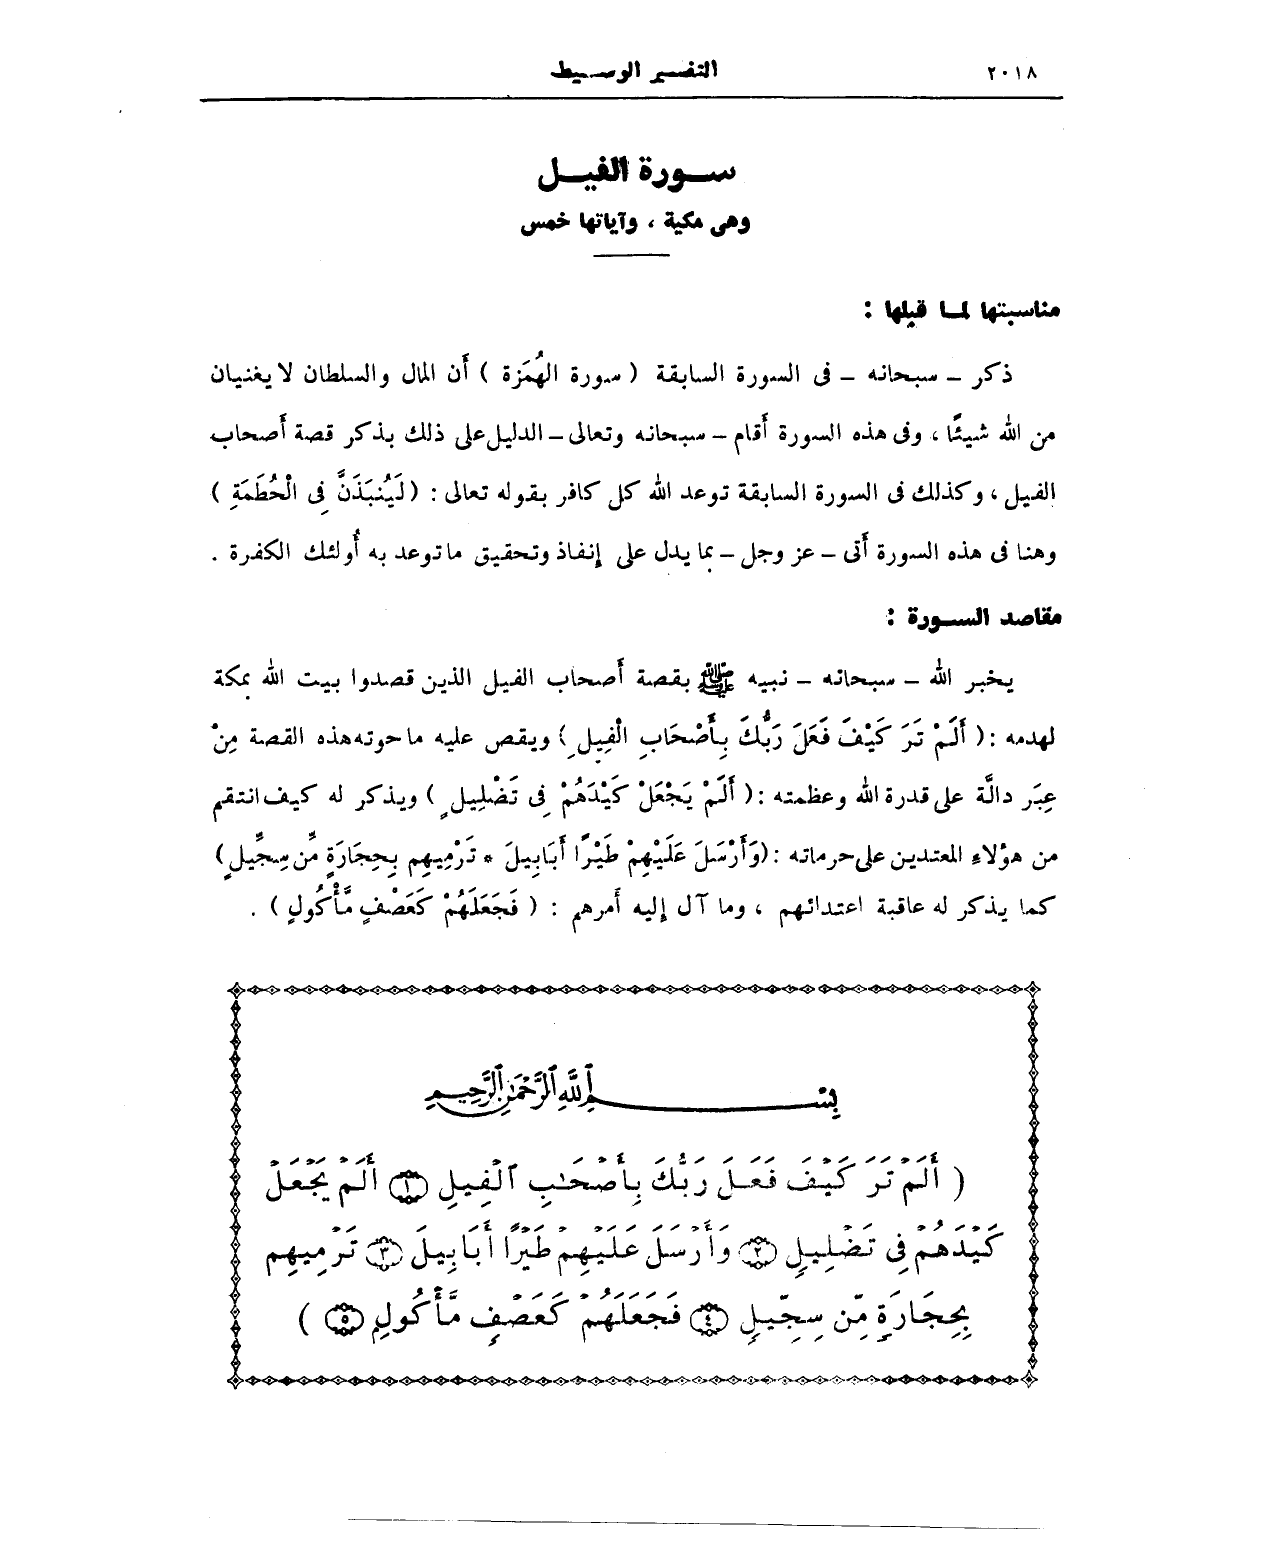 ٢٠١٨ التفسير الوسيط
سورة الفيل
وهى مكية ، وآياتها خمس
مناسبتها لما قبلها :
ذكر – سبحانه – فى السورة السابقة ( سورة الهُمَزة ) أن المال والسلطان لا يغنيان
من الله شيئًا ، وفى هذه السورة أقام – سبحانه وتعالى – الدليل على ذلك بذكر قصة أصحاب
الفيل ، وكذلك فى السورة السابقة توعد الله كل كافر بقوله تعالى : ( لَيُنبَذَنَّ فِى الْحُطَمَةِ )
وهنا فى هذه السورة أتى – عز وجل – بما يدل على إنفاذ وتحقيق ما توعد به أُولئك الكفرة .
مقاصد السورة :
يخبر الله – سبحانه – نبيه ﷺ بقصة أصحاب الفيل الذين قصدوا بيت الله بمكة
لهدمه : ( أَلَمْ تَرَ كَيْفَ فَعَلَ رَبُّكَ بِأَصْحَابِ الْفِيلِ ) ويقص عليه ما حوته هذه القصة مِنْ
عِبَر دالَّة على قدرة الله وعظمته : ( أَلَمْ يَجْعَلْ كَيْدَهُمْ فِى تَضْلِيلٍ ) ويذكر له كيف انتقم
من هؤلاءِ المعتدين على حرماته : ( وَأَرْسَلَ عَلَيْهِمْ طَيْرًا أَبَابِيلَ * تَرْمِيهِم بِحِجَارَةٍ مِّن سِجِّيلٍ )
كما يذكر له عاقبة اعتدائهم ، وما آل إليه أمرهم : ( فَجَعَلَهُمْ كَعَصْفٍ مَّأْكُولٍ ) .
بِسْمِ ٱللَّهِ ٱلرَّحْمَٰنِ ٱلرَّحِيمِ
( أَلَمْ تَرَ كَيْفَ فَعَلَ رَبُّكَ بِأَصْحَٰبِ ٱلْفِيلِ ١ أَلَمْ يَجْعَلْ
كَيْدَهُمْ فِى تَضْلِيلٍ ٢ وَأَرْسَلَ عَلَيْهِمْ طَيْرًا أَبَابِيلَ ٣ تَرْمِيهِم
بِحِجَارَةٍ مِّن سِجِّيلٍ ٤ فَجَعَلَهُمْ كَعَصْفٍ مَّأْكُولٍ ٥ )